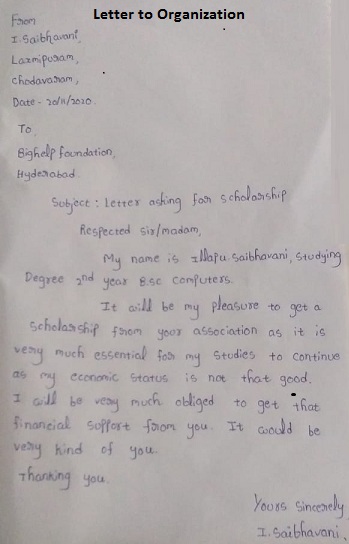 Letter to Organization
From
I. Saibhavani,
Laxmipuram,
chodavaram,
Date - 20/11/2020.
To
Bighelp foundation,
Hyderabad.
Subject : Letter asking for scholarship
Respected sir/madam,
My name is Illapu. Saibhavani, studying
Degree 2nd year B.sc computers.
It will be my pleasure to get a
scholarship from your association as it is
very much essential for my studies to continue
as my economic status is not that good.
I will be very much obliged to get that
financial support from you. It would be
very kind of you.
Thanking you.
Yours sincerely
I. Saibhavani.